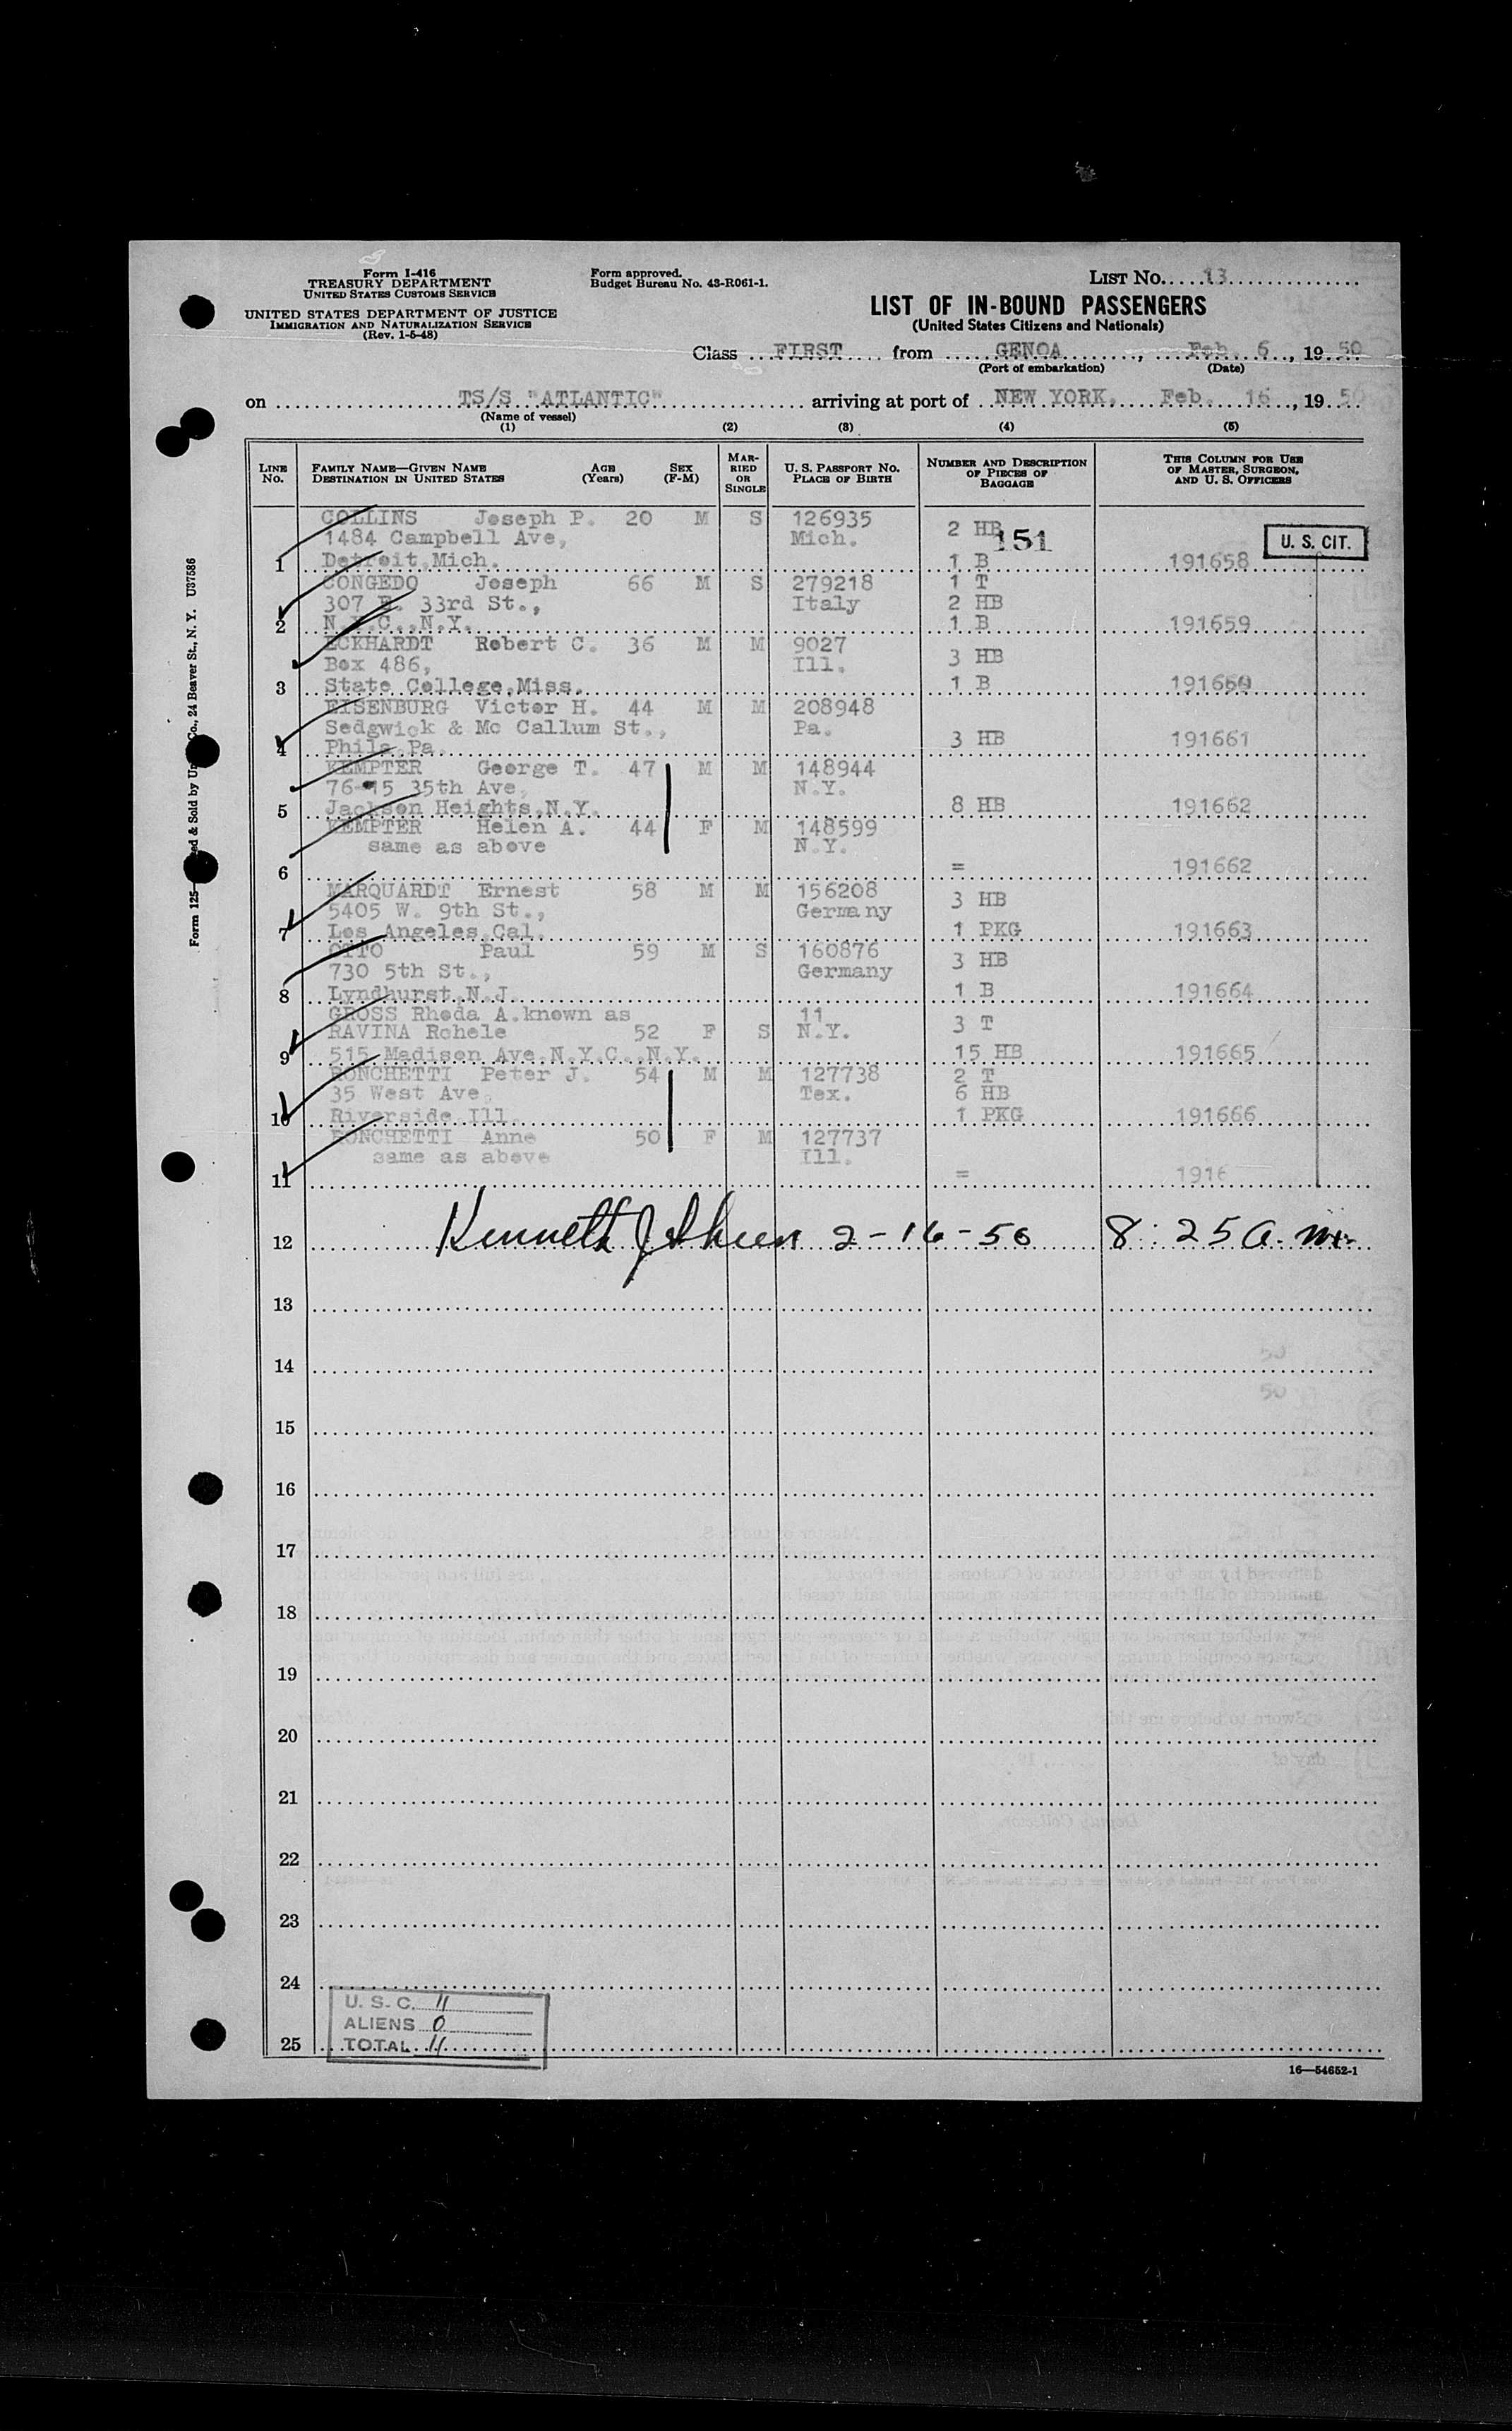 Form I-416
TREASURY DEPARTMENT
UNITED STATES CUSTOMS SERVICE
UNITED STATES DEPARTMENT OF JUSTICE
IMMIGRATION AND NATURALIZATION SERVICE
(Rev. 1-5-48)
Form approved.
Budget Bureau No. 43-R061-1.
LIST No. 13
LIST OF IN-BOUND PASSENGERS
(United States Citizens and Nationals)
Class FIRST from GENOA, Feb. 6, 19 50
(Port of embarkation) (Date)
on TS/S "ATLANTIC" arriving at port of NEW YORK, Feb. 16, 19 50
(Name of vessel)
(1) (2) (3) (4) (5)
LINE No. FAMILY NAME—GIVEN NAME DESTINATION IN UNITED STATES AGE (Years) SEX (F-M) MARRIED OR SINGLE U. S. PASSPORT NO. PLACE OF BIRTH NUMBER AND DESCRIPTION OF PIECES OF BAGGAGE THIS COLUMN FOR USE OF MASTER, SURGEON, AND U. S. OFFICERS
COLLINS Joseph P. 20 M S 126935
1484 Campbell Ave, Mich. 2 HB 151 U. S. CIT.
1 Detroit,Mich. 1 B 191658
CONGEDO Joseph 66 M S 279218 1 T
307 E. 33rd St., Italy 2 HB
2 N.Y.C.,N.Y. 1 B 191659
ECKHARDT Robert C. 36 M M 9027
Box 486, Ill. 3 HB
3 State College,Miss. 1 B 191660
EISENBURG Victor H. 44 M M 208948
Sedgwick & Mc Callum St., Pa.
4 Phila.Pa. 3 HB 191661
KEMPTER George T. 47 M M 148944
76-15 35th Ave, N.Y.
5 Jackson Heights,N.Y. 8 HB 191662
KEMPTER Helen A. 44 F M 148599
same as above N.Y.
6 = 191662
MARQUARDT Ernest 58 M M 156208
5405 W. 9th St., Germany 3 HB
7 Los Angeles,Cal. 1 PKG 191663
OTTO Paul 59 M S 160876
730 5th St., Germany 3 HB
8 Lyndhurst,N.J. 1 B 191664
GROSS Rhoda A.known as 11 3 T
RAVINA Rohele 52 F S N.Y.
9 515 Madison Ave.N.Y.C.,N.Y. 15 HB 191665
RONCHETTI Peter J. 54 M M 127738 2 T
35 West Ave, Tex. 6 HB
10 Riverside Ill. 1 PKG 191666
RONCHETTI Anne 50 F M 127737
same as above Ill.
11 = 1916
12 Kenneth 2-16-50 8:25 a.m.
13
14
15
16
17
18
19
20
21
22
23
24
U. S. C. 11
ALIENS 0
25 TOTAL 11
16—54652-1
Form 125— ed & Sold by Un Co., 24 Beaver St., N. Y. U37586
50
50